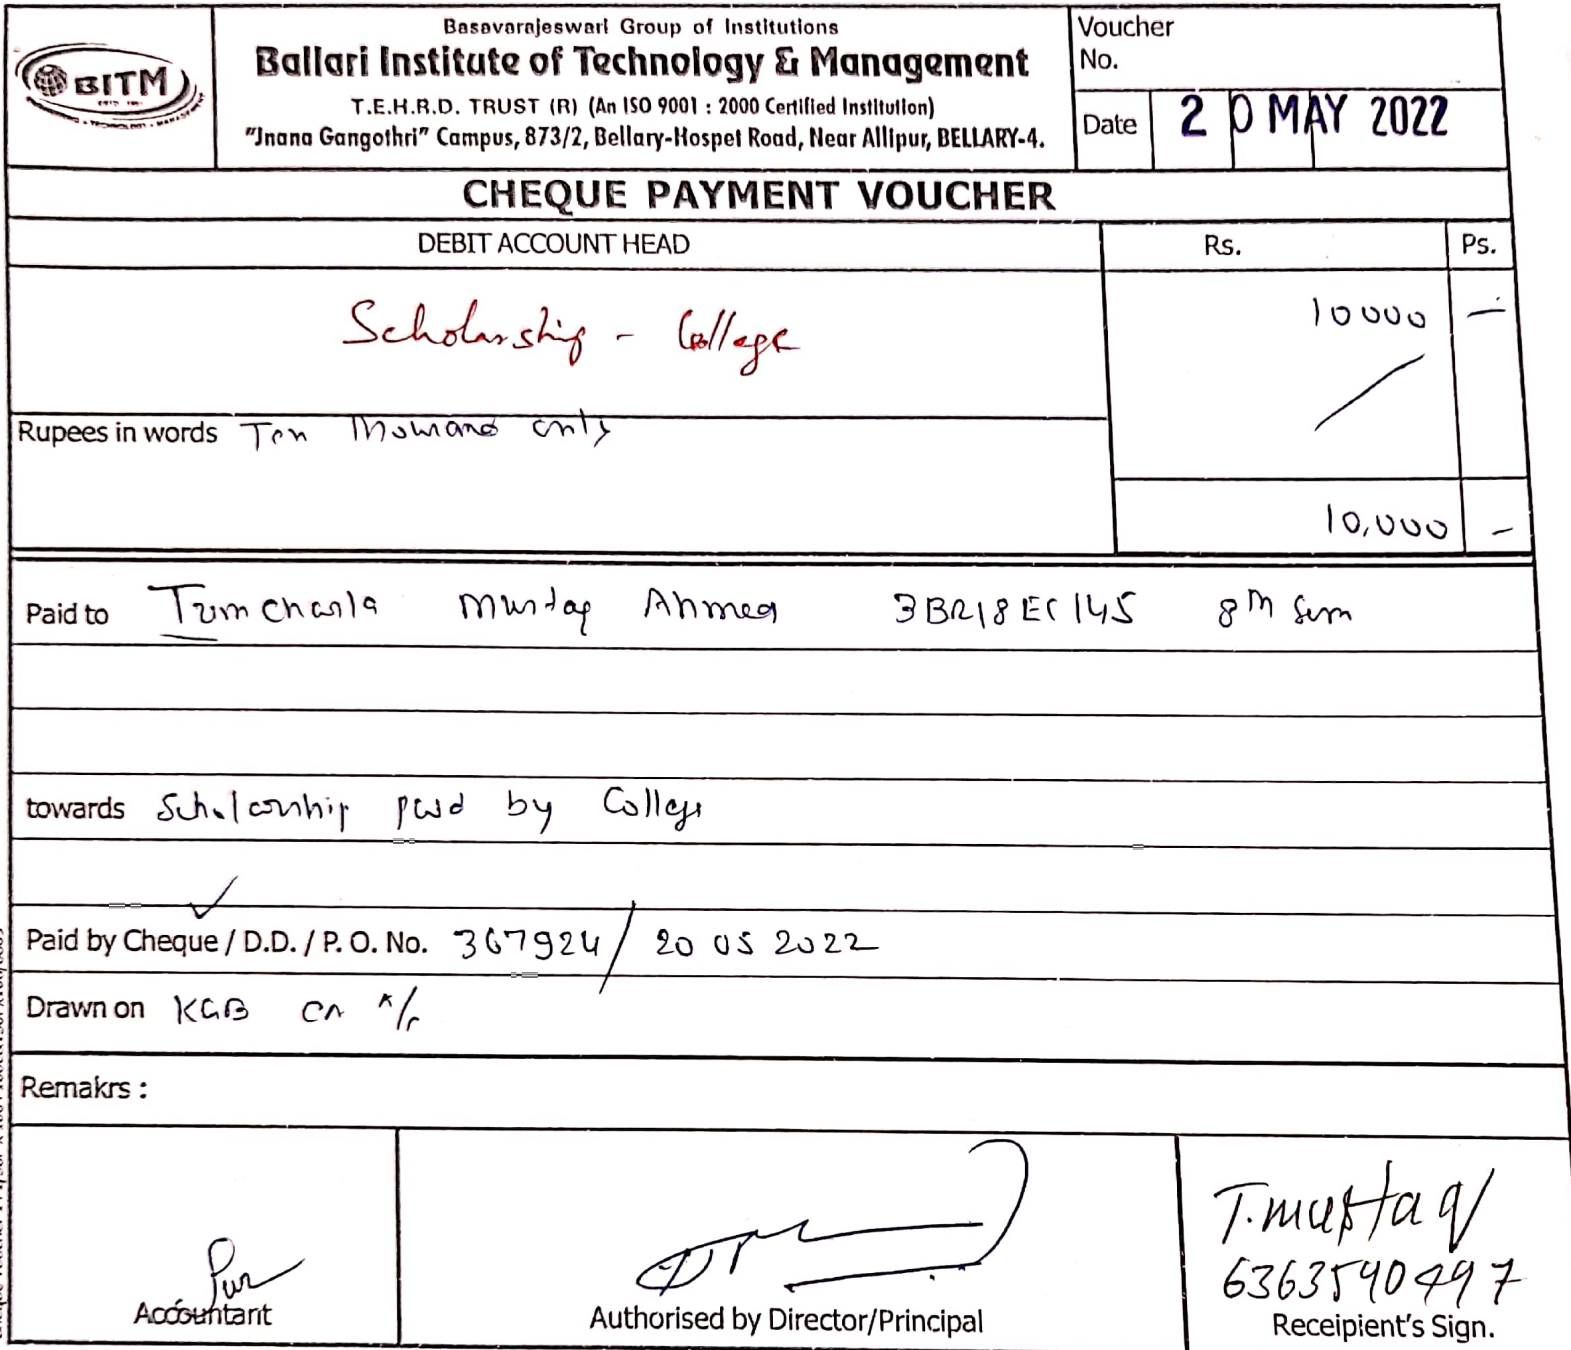 BITM
Basavarajeswari Group of Institutions
Ballari Institute of Technology & Management
T.E.H.R.D. TRUST (R) (An ISO 9001 : 2000 Certified Institution)
"Jnana Gangothri" Campus, 873/2, Bellary-Hospet Road, Near Allipur, BELLARY-4.
Voucher
No.
Date 20 MAY 2022
CHEQUE PAYMENT VOUCHER
DEBIT ACCOUNT HEAD Rs. Ps.
Scholarship - College 10000 —
Rupees in words Ten Thousand only
10,000 -
Paid to Tumcharla Mustaq Ahmed 3BR18EC145 8th Sem
towards Scholarship paid by College
Paid by Cheque / D.D. / P. O. No. 367924 / 20 05 2022
Drawn on KGB CA A/c
Remakrs :
Accountant
Authorised by Director/Principal
T. mustaq
6363540497
Receipient's Sign.